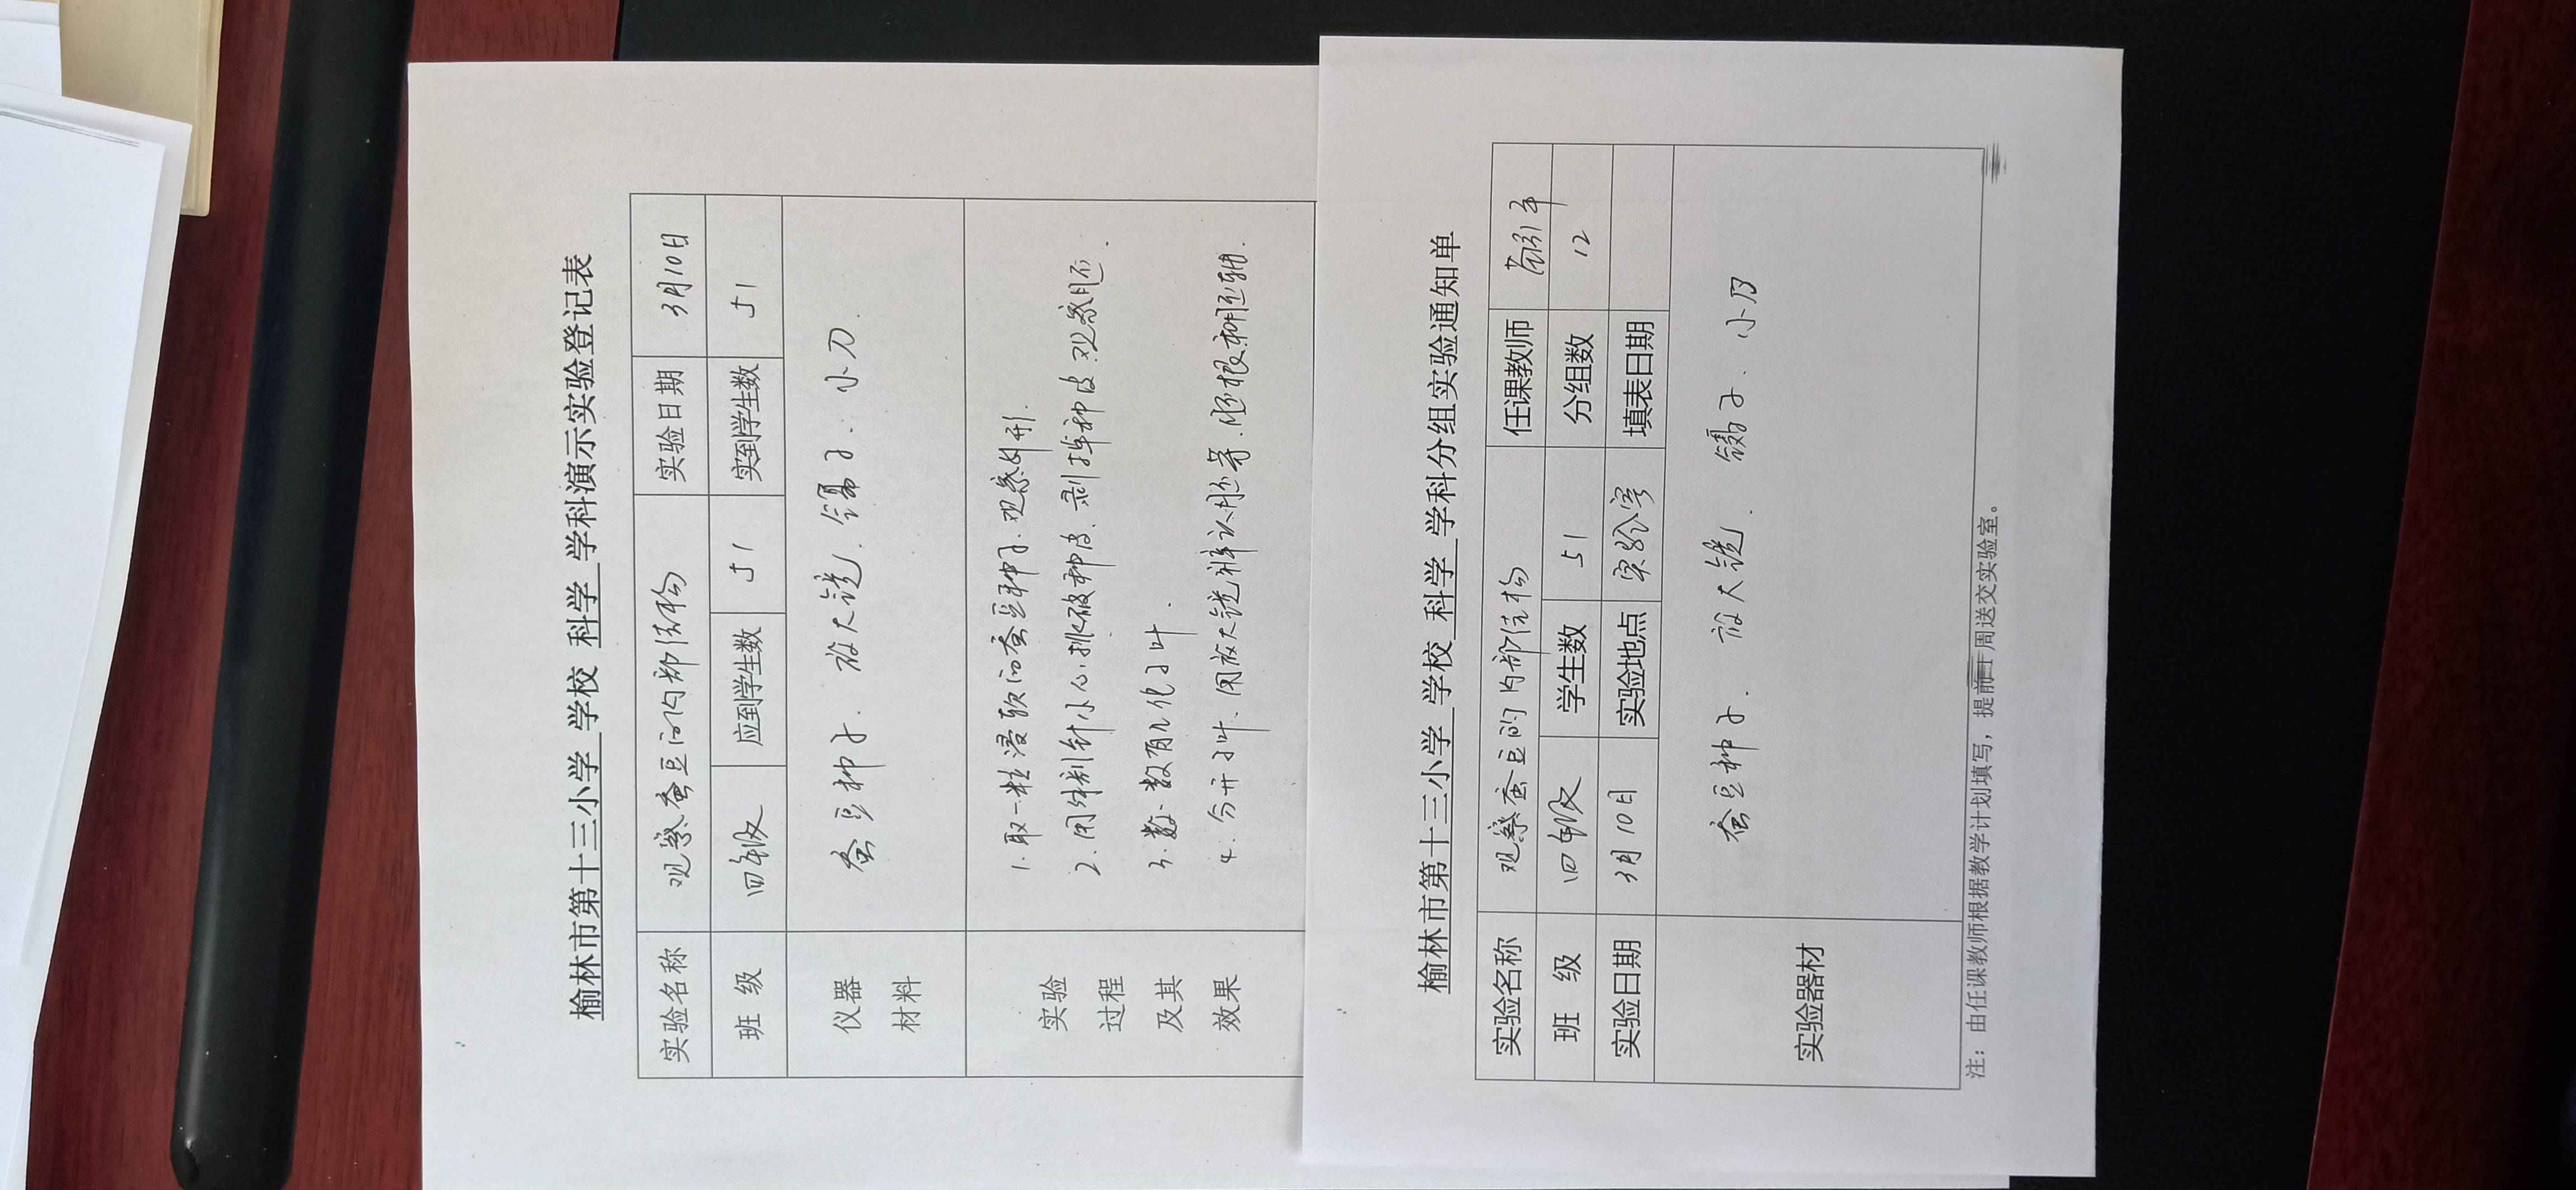 榆林市第十三小学 学校 科学 学科演示实验登记表
实验名称 观察蚕豆的内部结构 实验日期 3月10日
班 级 四年级 应到学生数 51 实到学生数 51
仪器 材料 蚕豆种子、放大镜、镊子、小刀.
实验 过程 及其 效果
1.取一粒浸软的蚕豆种子.观察外形.
2.用解剖针小心挑破种皮.剥掉种皮.观察胚.
3.数数有几个子叶.
4.分开子叶、用放大镜辨认胚芽.胚根和胚轴.
榆林市第十三小学 学校 科学 学科分组实验通知单
实验名称 观察蚕豆的内部结构 任课教师
班 级 四年级 学生数 51 分组数 12
实验日期 3月10日 实验地点 实验室 填表日期
实验器材 蚕豆种子. 放大镜. 镊子. 小刀
注：由任课教师根据教学计划填写，提前一周送交实验室。